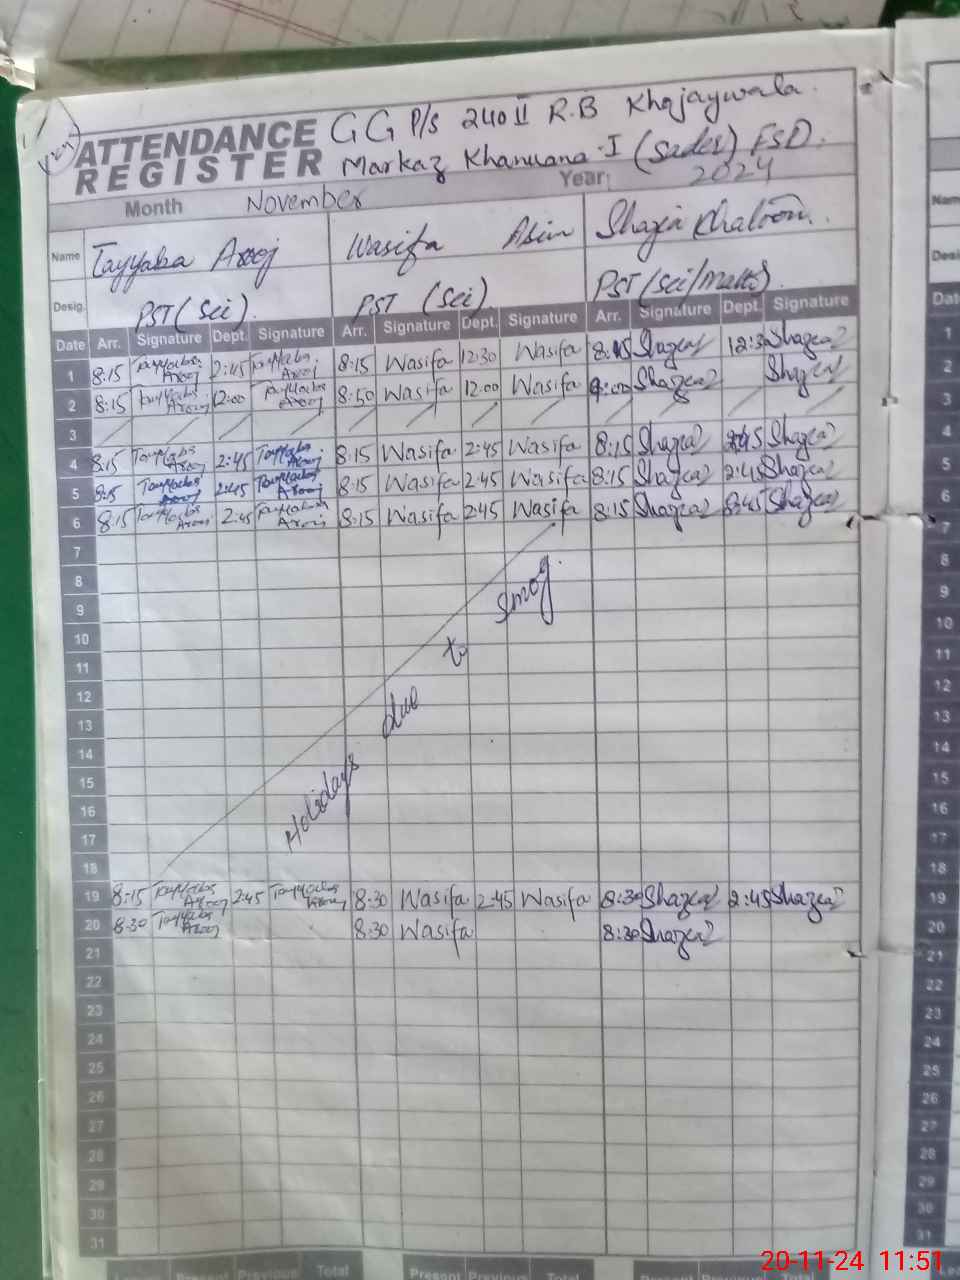 ATTENDANCE REGISTER
GG P/S 240 II R.B Khajaywala.
Markaz Khanuana-I (Sader) FSD.
Month November Year: 2024
Name Tayyaba Arooj Wasifa Asim Shazia Khatoon.
Desig. PST (Sci) PST (Sci) PST (Sci/Math)
Date Arr. Signature Dept. Signature Arr. Signature Dept. Signature Arr. Signature Dept. Signature
1 8:15 Tayyaba Arooj 2:45 Tayyaba Arooj 8:15 Wasifa 12:30 Wasifa 8:15 Shazia 12:30 Shazia
2 8:15 Tayyaba Arooj 12:00 Tayyaba Arooj 8:50 Wasifa 12:00 Wasifa 9:00 Shazia Shazia
3
4 8:15 Tayyaba Arooj 2:45 Tayyaba Arooj 8:15 Wasifa 2:45 Wasifa 8:15 Shazia 2:45 Shazia
5 8:15 Tayyaba Arooj 2:45 Tayyaba Arooj 8:15 Wasifa 2:45 Wasifa 8:15 Shazia 2:45 Shazia
6 8:15 Tayyaba Arooj 2:45 Tayyaba Arooj 8:15 Wasifa 2:45 Wasifa 8:15 Shazia 2:45 Shazia
7
8
9
10
11
12
13
14
15
16
17
18
Holidays due to Smog.
19 8:15 Tayyaba Arooj 2:45 Tayyaba Arooj 8:30 Wasifa 2:45 Wasifa 8:30 Shazia 2:45 Shazia
20 8:30 Tayyaba Arooj 8:30 Wasifa 8:30 Shazia
21
22
23
24
25
26
27
28
29
30
31
Present Previous Total Present Previous Total Present Previous Total
20-11-24 11:51